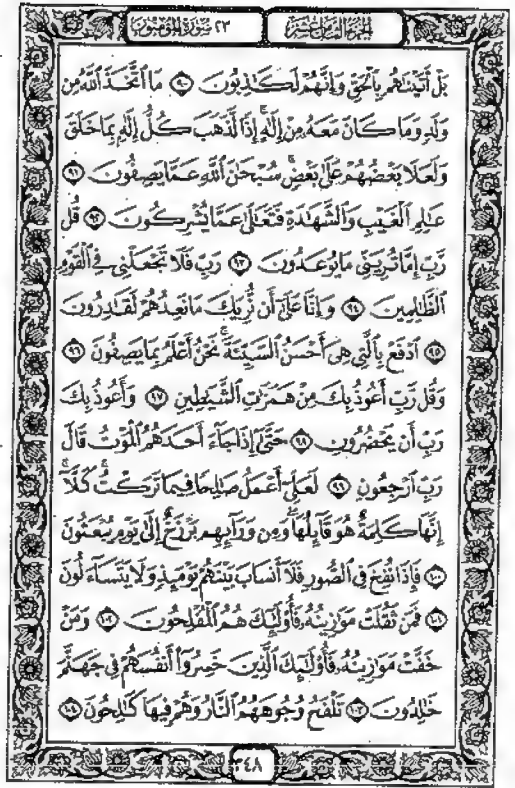 الجزء الثامن عشر ٢٣ سورة المؤمنون
بَلْ أَتَيْنَٰهُم بِٱلْحَقِّ وَإِنَّهُمْ لَكَٰذِبُونَ ٩٠ مَا ٱتَّخَذَ ٱللَّهُ مِن
وَلَدٍ وَمَا كَانَ مَعَهُۥ مِنْ إِلَٰهٍ ۚ إِذًا لَّذَهَبَ كُلُّ إِلَٰهٍۭ بِمَا خَلَقَ
وَلَعَلَا بَعْضُهُمْ عَلَىٰ بَعْضٍ ۚ سُبْحَٰنَ ٱللَّهِ عَمَّا يَصِفُونَ ٩١
عَٰلِمِ ٱلْغَيْبِ وَٱلشَّهَٰدَةِ فَتَعَٰلَىٰ عَمَّا يُشْرِكُونَ ٩٢ قُل
رَّبِّ إِمَّا تُرِيَنِّى مَا يُوعَدُونَ ٩٣ رَبِّ فَلَا تَجْعَلْنِى فِى ٱلْقَوْمِ
ٱلظَّٰلِمِينَ ٩٤ وَإِنَّا عَلَىٰٓ أَن نُّرِيَكَ مَا نَعِدُهُمْ لَقَٰدِرُونَ
٩٥ ٱدْفَعْ بِٱلَّتِى هِىَ أَحْسَنُ ٱلسَّيِّئَةَ ۚ نَحْنُ أَعْلَمُ بِمَا يَصِفُونَ ٩٦
وَقُل رَّبِّ أَعُوذُ بِكَ مِنْ هَمَزَٰتِ ٱلشَّيَٰطِينِ ٩٧ وَأَعُوذُ بِكَ
رَبِّ أَن يَحْضُرُونِ ٩٨ حَتَّىٰٓ إِذَا جَآءَ أَحَدَهُمُ ٱلْمَوْتُ قَالَ
رَبِّ ٱرْجِعُونِ ٩٩ لَعَلِّىٓ أَعْمَلُ صَٰلِحًا فِيمَا تَرَكْتُ ۚ كَلَّآ ۚ
إِنَّهَا كَلِمَةٌ هُوَ قَآئِلُهَا ۖ وَمِن وَرَآئِهِم بَرْزَخٌ إِلَىٰ يَوْمِ يُبْعَثُونَ
١٠٠ فَإِذَا نُفِخَ فِى ٱلصُّورِ فَلَآ أَنسَابَ بَيْنَهُمْ يَوْمَئِذٍ وَلَا يَتَسَآءَلُونَ
١٠١ فَمَن ثَقُلَتْ مَوَٰزِينُهُۥ فَأُو۟لَٰٓئِكَ هُمُ ٱلْمُفْلِحُونَ ١٠٢ وَمَنْ
خَفَّتْ مَوَٰزِينُهُۥ فَأُو۟لَٰٓئِكَ ٱلَّذِينَ خَسِرُوٓا۟ أَنفُسَهُمْ فِى جَهَنَّمَ
خَٰلِدُونَ ١٠٣ تَلْفَحُ وُجُوهَهُمُ ٱلنَّارُ وَهُمْ فِيهَا كَٰلِحُونَ ١٠٤